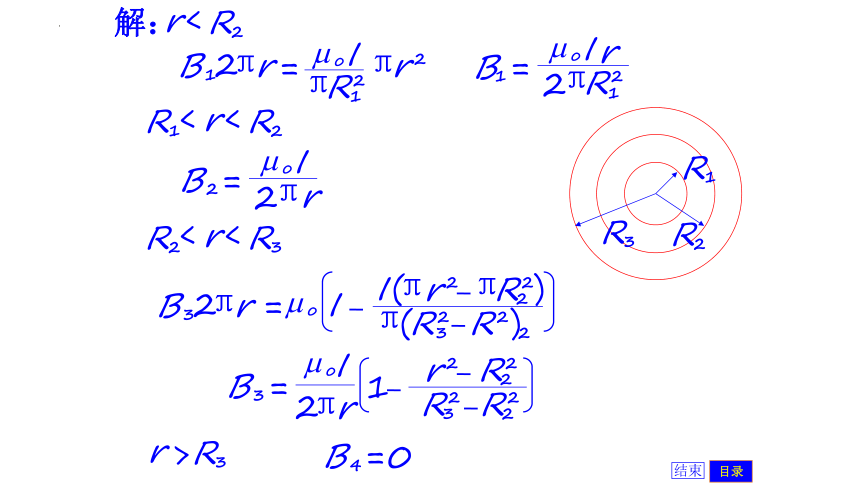 解：r< R₂
B₁2πr = μ₀I/πR₁² πr² B₁ = μ₀Ir/2πR₁²
R₁< r< R₂
B₂ = μ₀I/2πr
R₂< r< R₃
B₃2πr = μ₀[I − I(πr²−πR₂²)/π(R₃²−R²)₂]
B₃ = μ₀I/2πr [1− r²−R₂²/R₃²−R₂²]
r >R₃ B₄=0
R₁
R₃ R₂
结束 目录